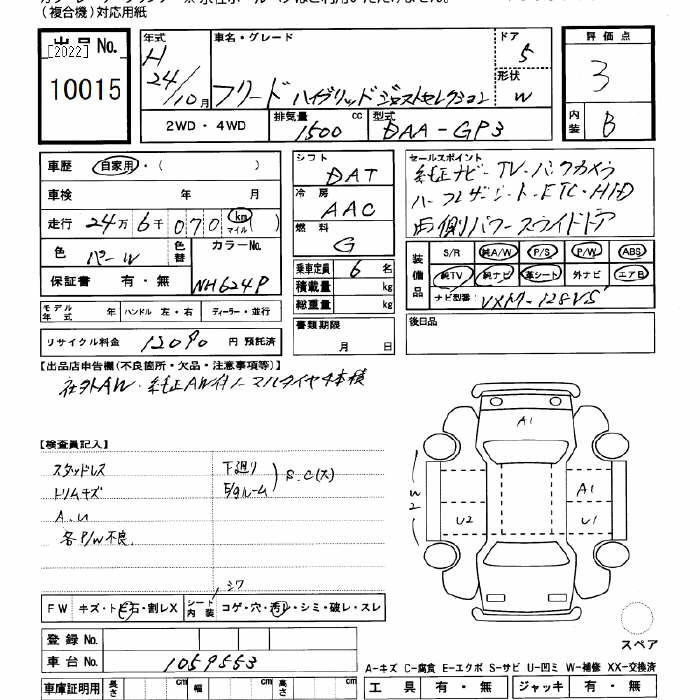 (複合機)対応用紙
出品No. [2022]
10015
年式 H 24/10月
車名・グレード フリード ハイブリッド ジャストセレクション
ドア 5
形状 W
評価点 3
内装 B
2WD・4WD
排気量 1500 cc
型式 DAA-GP3
車歴 自家用・( )
車検 年 月
走行 24万6千070 km マイル ( )
色 パール 色替 カラーNo. NH624P
保証書 有・無
シフト DAT
冷房 AAC
燃料 G
乗車定員 6 名
積載量 kg
総重量 kg
書類期限 月 日
セールスポイント
純正ナビ-TV-バックカメラ
ハーフレザーシート-ETC-HID
両側パワースライドドア
装備品 S/R 純A/W P/S P/W ABS
純TV 純ナビ 革シート 外ナビ エアB
ナビ型番 VXM-128VS
後日品
モデル年式 年 ハンドル 左・右 ディーラー・並行
リサイクル料金 12090 円 預託済
【出品店申告欄(不良箇所・欠品・注意事項等)】
社外AW・純正AW付ノーマルタイヤ4本積
【検査員記入】
スタッドレス
トリムキズ
A.U
各P/W不良
下廻り
E/gルーム
S.C(大)
A1
W2
U2
A1
U1
シワ
FW キズ・トビ石・割レX
シート内装 コゲ・穴・汚レ・シミ・破レ・スレ
登録No.
車台No. 1059553
スペア
A-キズ C-腐食 E-エクボ S-サビ U-凹ミ W-補修 XX-交換済
車庫証明用 長さ cm 幅 cm 高さ cm
工具 有・無 ジャッキ 有・無